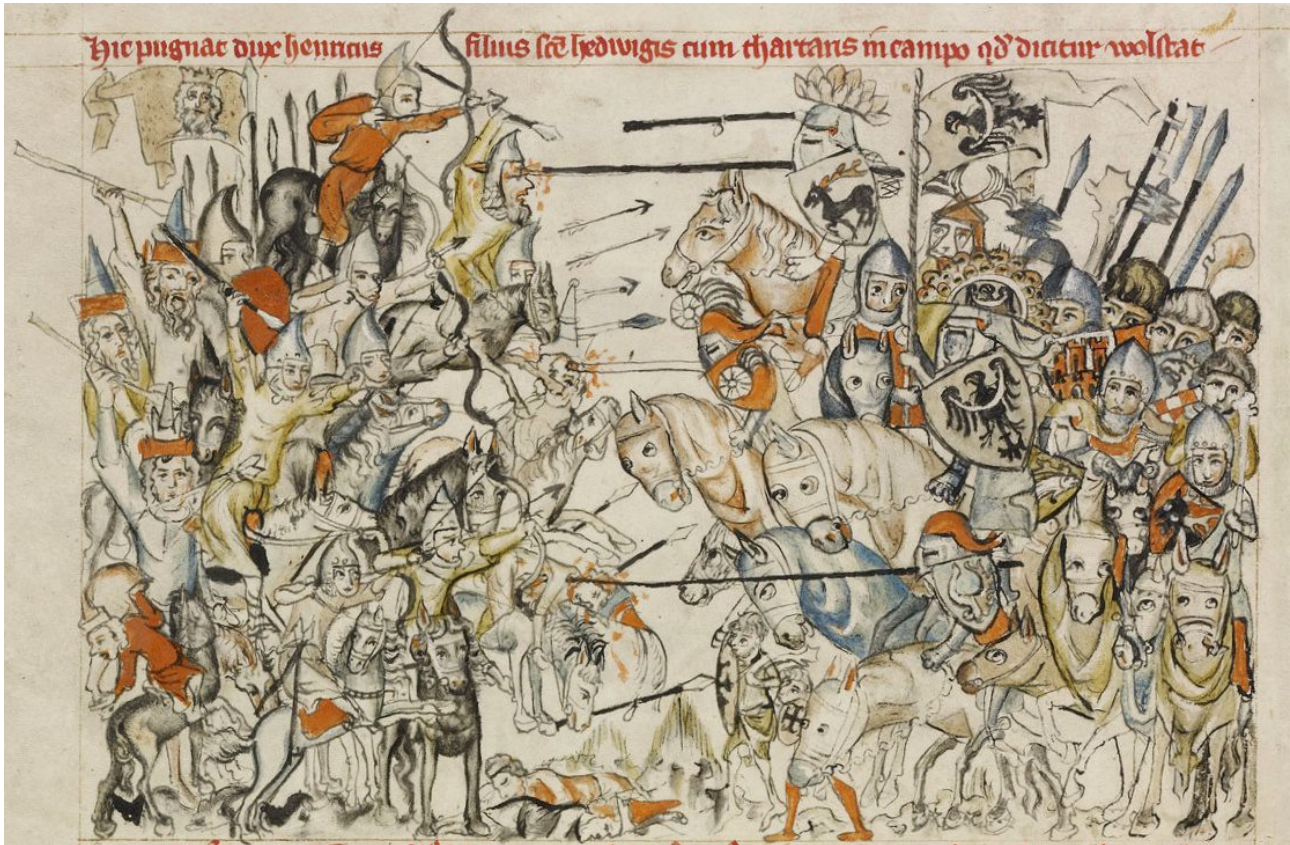 Hic pugnat dux henricus filius scē hedwigis cum thartaris in campo qd̄ dicitur wolstat